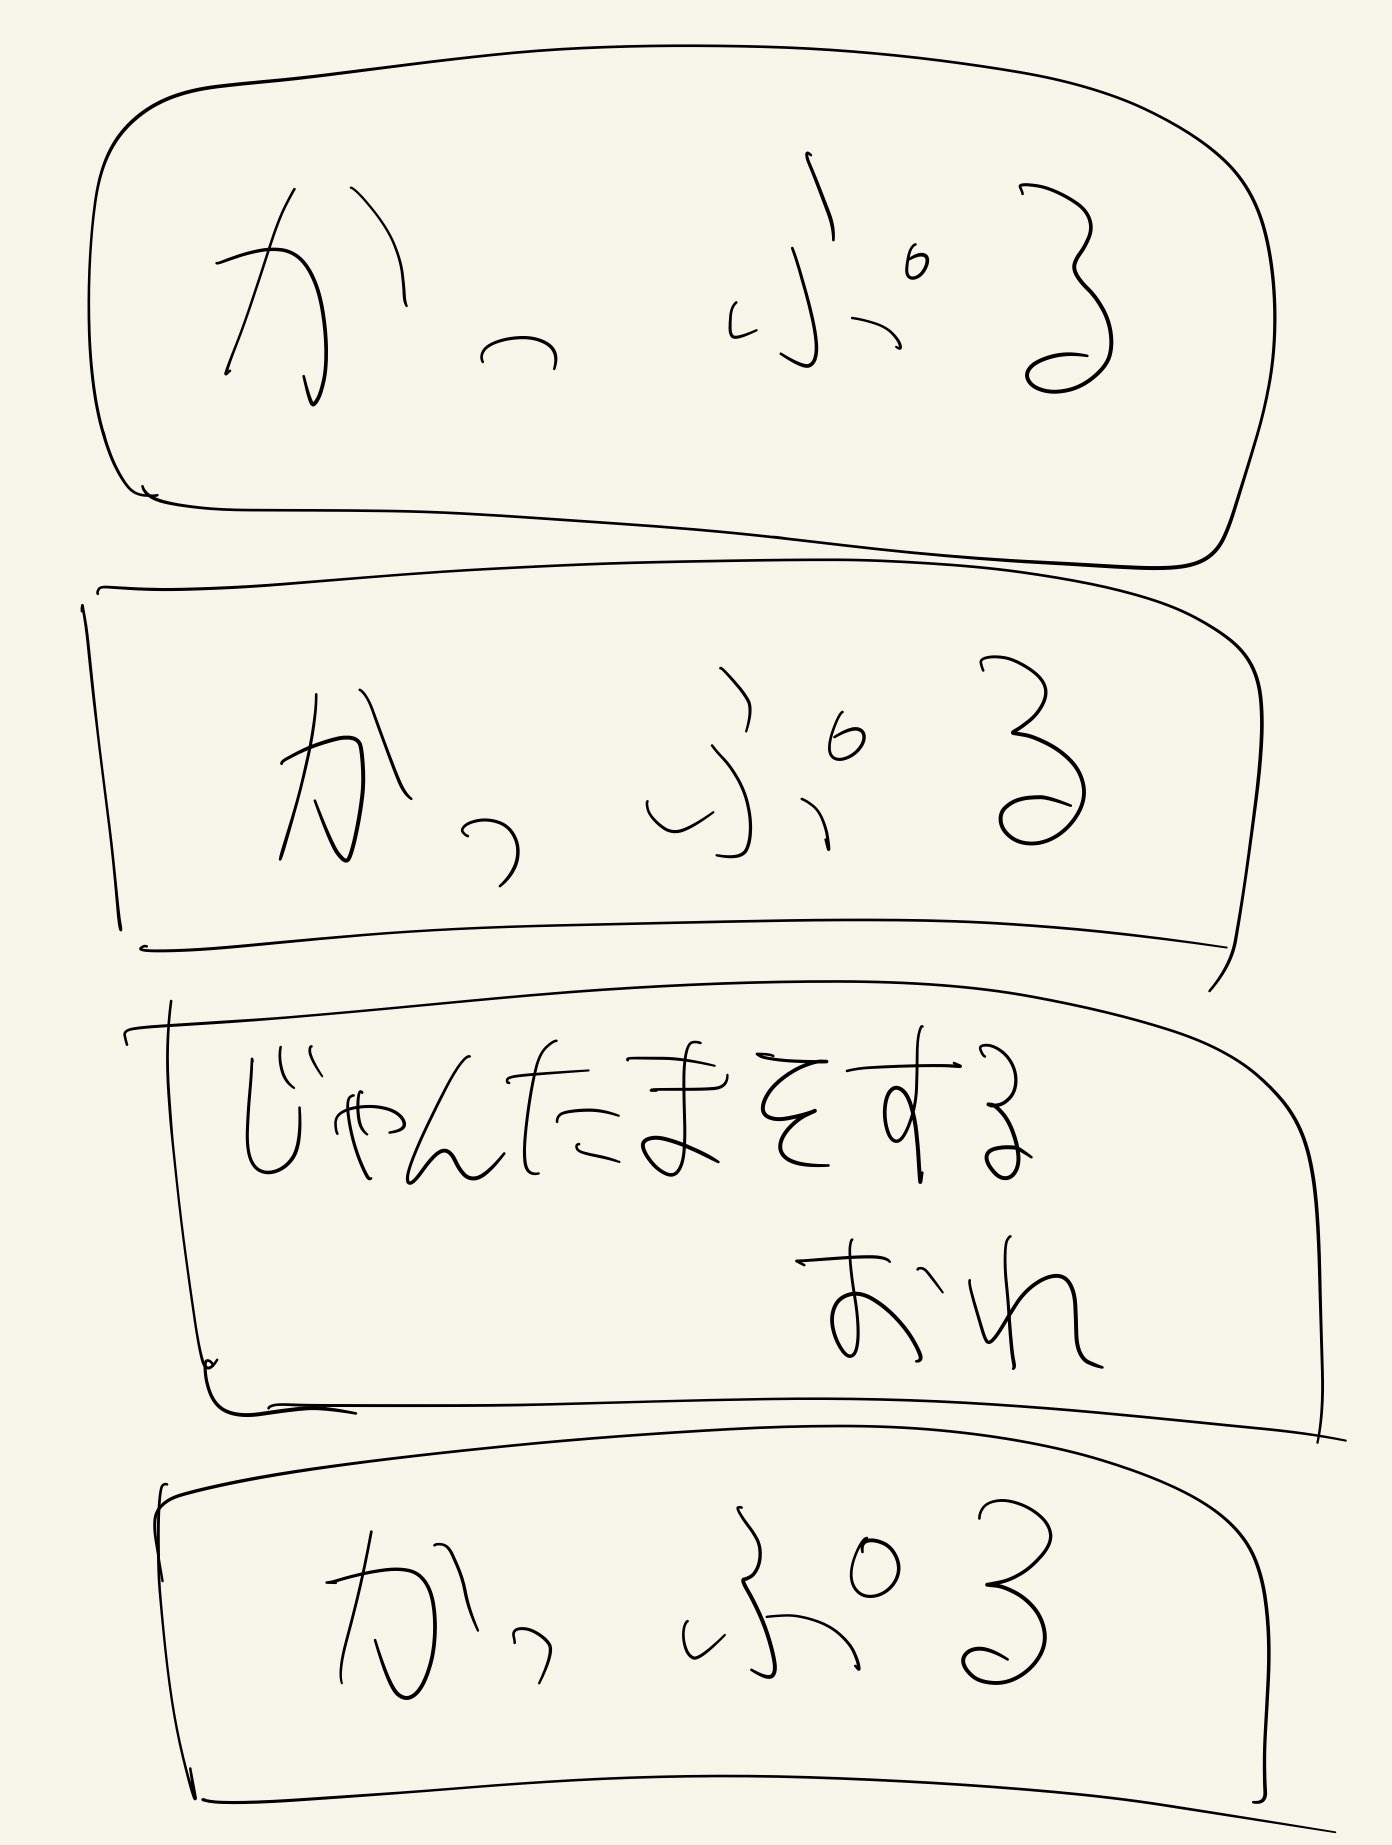 かっぷる
かっぷる
じゃんたまをする
おれ
かっぷる